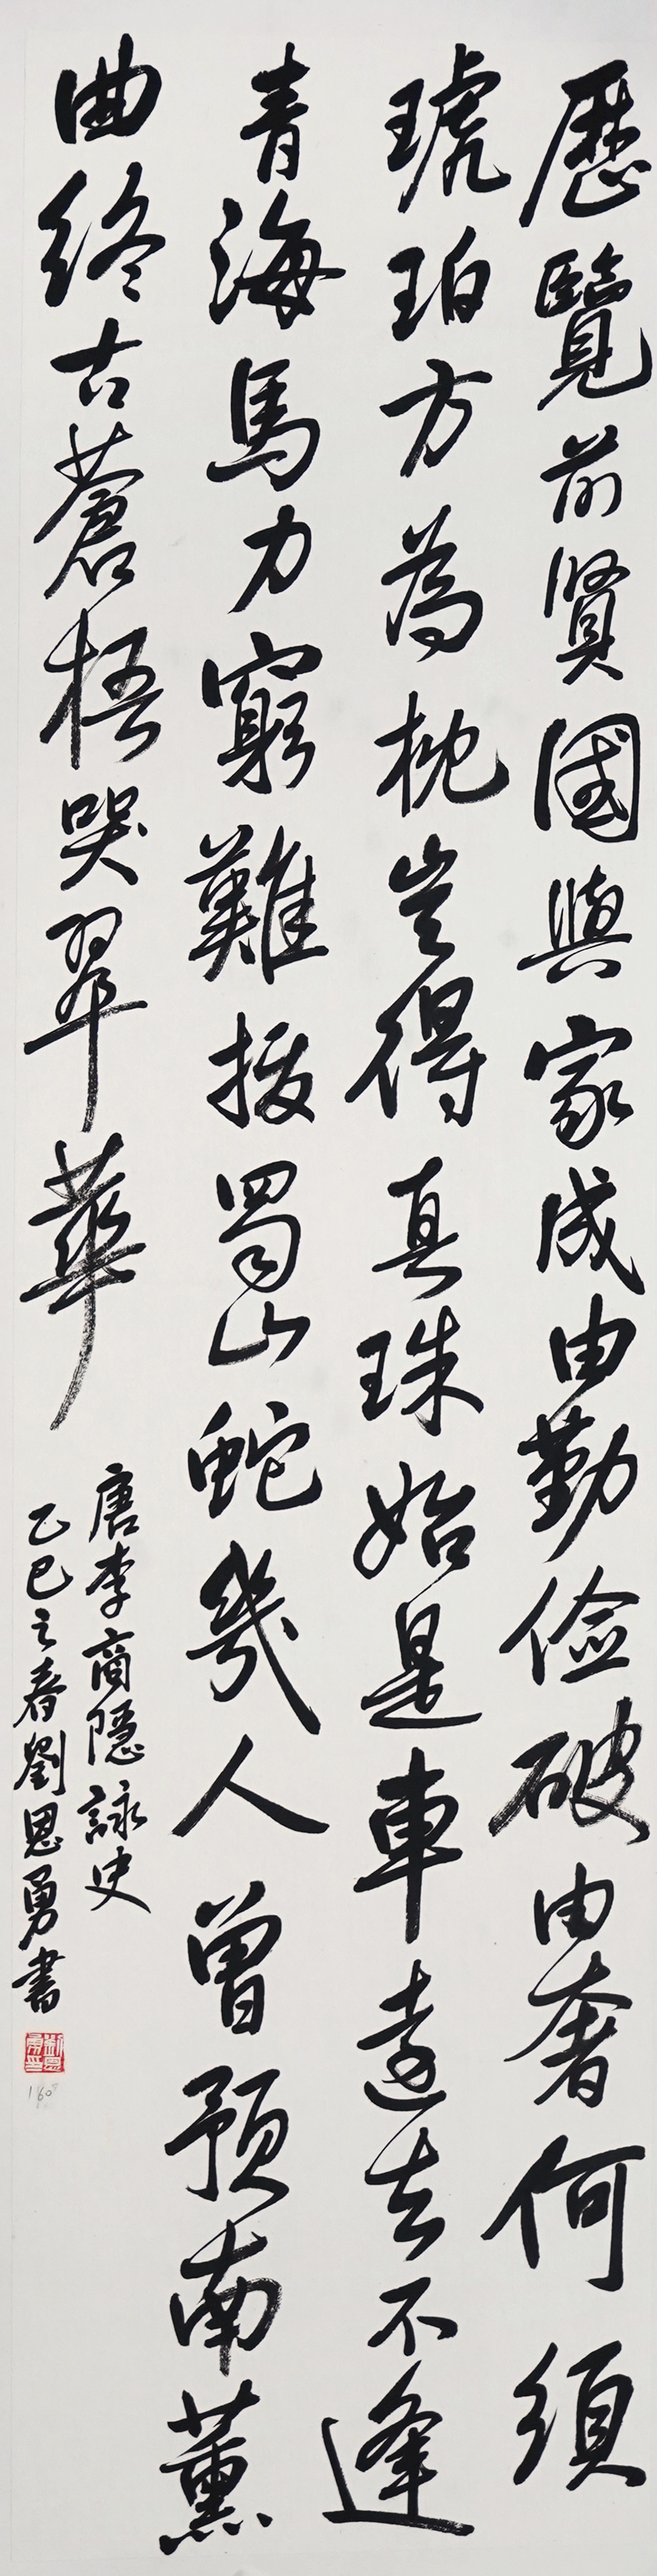 歷覽前賢國與家成由勤儉破由奢何須
琥珀方為枕豈得真珠始是車遠去不逢
青海馬力窮難拔蜀山蛇幾人曾預南薰
曲終古蒼梧哭翠華
唐李商隱詠史
乙巳之春劉恩勇書
劉恩勇印
160